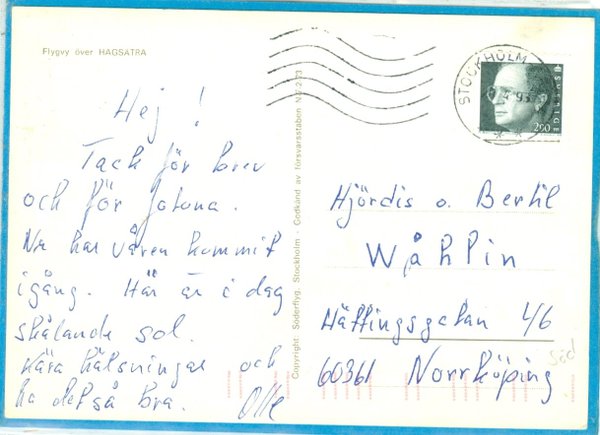 Flygvy över HAGSÄTRA
Hej !
Tack för brev
och för fotona.
Nu har våren kommit
igång. Här är i dag
strålande sol.
Kära hälsningar och
ha det så bra. Olle
Copyright: Söderflyg. Stockholm - Godkänd av försvarsstaben
STOCKHOLM
4 93
SVERIGE
200
Hjördis o. Bertil
Wåhlin
Hällingsgatan 4/6
60361 Norrköping
Süd